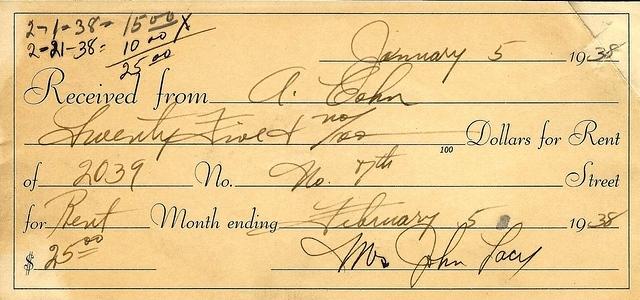 2-1-38= 15 00 X
2-21-38= 10 00
25 00
January 5 1938
Received from A. Cohn
Twenty Five & no/00 100 Dollars for Rent
of 2039 No. No. 7th Street
for Rent Month ending February 5 1938
$ 25 00 Mrs John Lacy